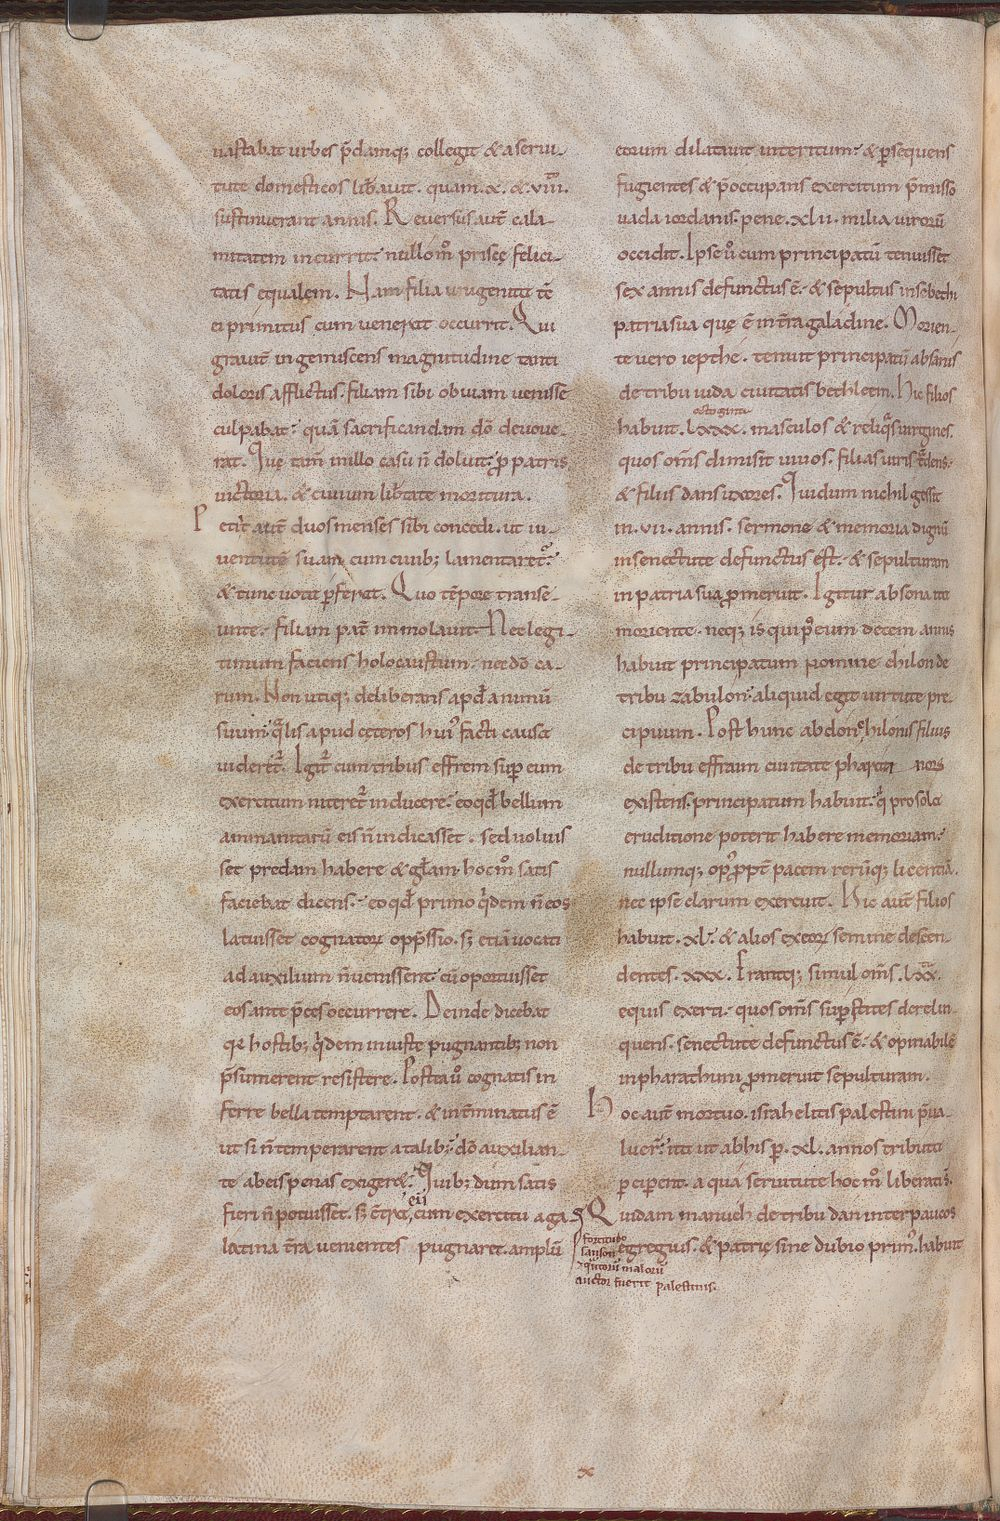 uastabat urbes p̄damq; collegit & a serui-
tute domesticos lib̄auit. quam .x. & .viii.
sustinuerant annis. Reuersus aut̄ cala-
mitatem incurrit nullom̊ priscę felici-
tatis equalem. Nam filia unigenita tc̄
ei primitus cum ueneret occurrit. Qui
grauit̄ ingemiscens magnitudine tanti
doloris afflictus. filiam sibi obuiam uenisse
culpabat. quā sacrificandam dō deuoue-
rat. Ique tam̄ in illo casu ñ doluit. ꝓ patris
uictoria. & ciuium lib̄tate moritura.
Petiit aut̄ duos menses sibi concedi. ut iu-
uentutē suam cum ciuib; lamentaret̄.
& tunc uota p̄feret. Quo tēpore transe-
unte. filiam pat̄ immolauit. Nec legi-
timum faciens holocaustum. nec dō ca-
rum. Non utiq; deliberans apd̄ animū
suum qlis apud ceteros hui' facti causa
uideret̄. Igit̄ cum tribus effrem sup eum
exercitum niteret̄ inducere. eo qd̄ bellum
ammanitarū eis ñ indicasset. sed uoluis
set predam habere & gl̄am. hoc m̊ satis
faciebat dicens. eo qd̄ primo qdem ñ eos
latuisset cognatoꝝ opp̄ssio. s; etiā uocati
ad auxilium ñ uenissent. cū oportuisset
eos ante p̄ces occurrere. Deinde dicebat
qꝛ hostib; qdem iniuste pugnantib; non
p̄sumerent resistere. Postea ů cognatis in
ferre bella temptarent. & int̄minatus ē
ut si ñ temperarent a talib; dō auxilian-
te ab eis penas exiger&. Quib; dum satis
fieri ñ potuisset. s; cum exercitu a ga-
latina t̄ra uenientes pugnaret. amplū
eorum dilatauit interitum. & p̄sequens
fugientes & p̄occupans exercitum p̄misso
uada iordanis. pene .xlii. milia uirorū
occidit. Ipse ů cum principatū tenuisset
sex annis defunctus ē. & sepultus in sebethi
patria sua que ē in t̄ra galadine. Morien-
te uero iepthe. tenuit principatū absanis
de tribu iuda ciuitatis bethleem. Hic filios
octoginta
habuit .lxxx. masculos & reliq̄s uirgines.
quos om̄s dimisit uiuos. filias uiris t̄dens.
& filiis dans uxores. Qui dum nichil gessit
in .vii. annis. sermone & memoria dignū
in senectute defunctus est. & sepulturam
in patria sua ꝓmeruit. Igitur absona ita
moriente. neq; is qui p' eum decem annis
habuit principatum nomine chilon de
tribu zabulon. aliquid egit uirtute pre-
cipuum. Post hunc abdon chilonis filius
de tribu effraim ciuitate pharati nois
existens. principatum habuit. q̄ pro sola
eruditione poterit habere memoriam.
nullumq; op' ꝓpt̄ pacem rerūq; licentiā.
nec ipse clarum exercuit. Hic aut̄ filios
habuit .xl. & alios ex eoꝝ semine descen-
dentes .xxx. Erantq; simul om̄s .lxx.
equis exerti. quos om̄s sup̄stites derelin-
quens. senectute defunctus ē. & opinabilē
in pharathuni ꝓmeruit sepulturam.
Hoc aut̄ mortuo. israhelitis palestini p̄ua-
luer̄. ita ut ab his p .xl. annos tributa
p̄ciperent. a qua seruitute hoc m̊ liberati s̄.
Quidam manueh de tribu dan inter paucos
egregius. & patrię sine dubio prim'. habuit
fortitudo
sanson
& q̄ntorū malorū
auctor fuerit palestinis.
x